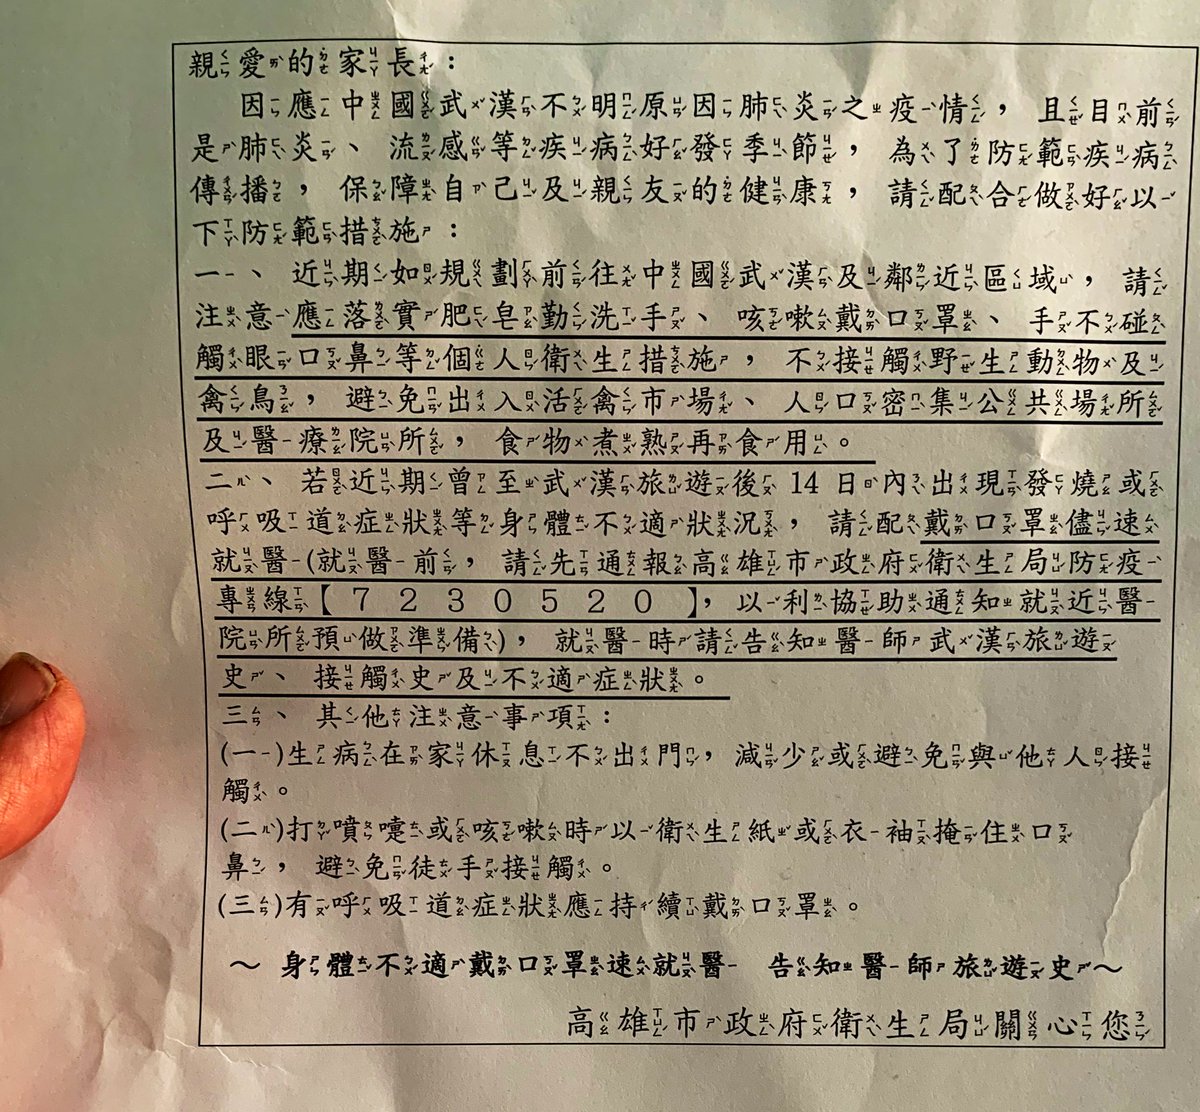 親愛的家長：
因應中國武漢不明原因肺炎之疫情，且目前
是肺炎、流感等疾病好發季節，為了防範疾病
傳播，保障自己及親友的健康，請配合做好以
下防範措施：
一、近期如規劃前往中國武漢及鄰近區域，請
注意應落實肥皂勤洗手、咳嗽戴口罩、手不碰
觸眼口鼻等個人衛生措施，不接觸野生動物及
禽鳥，避免出入活禽市場、人口密集公共場所
及醫療院所，食物煮熟再食用。
二、若近期曾至武漢旅遊後14日內出現發燒或
呼吸道症狀等身體不適狀況，請配戴口罩儘速
就醫(就醫前，請先通報高雄市政府衛生局防疫
專線【７２３０５２０】，以利協助通知就近醫
院所預做準備)，就醫時請告知醫師武漢旅遊
史、接觸史及不適症狀。
三、其他注意事項：
(一)生病在家休息不出門，減少或避免與他人接
觸。
(二)打噴嚏或咳嗽時以衛生紙或衣袖掩住口
鼻，避免徒手接觸。
(三)有呼吸道症狀應持續戴口罩。
～身體不適戴口罩速就醫 告知醫師旅遊史～
高雄市政府衛生局關心您